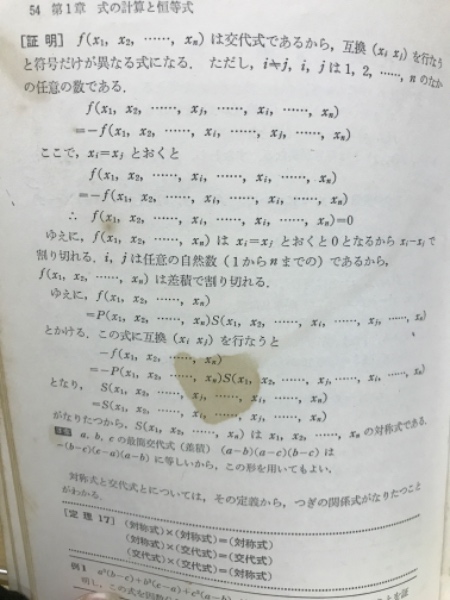 54 第1章 式の計算と恒等式
[証明] f(x₁, x₂, ……, xₙ) は交代式であるから, 互換 (xᵢ xⱼ) を行なう
と符号だけが異なる式になる. ただし, i≠j, i, j は 1, 2, ……, n のなか
の任意の数である.
f(x₁, x₂, ……, xⱼ, ……, xᵢ, ……, xₙ)
=−f(x₁, x₂, ……, xᵢ, ……, xⱼ, ……, xₙ)
ここで, xᵢ=xⱼ とおくと
f(x₁, x₂, ……, xᵢ, ……, xᵢ, ……, xₙ)
=−f(x₁, x₂, ……, xᵢ, ……, xᵢ, ……, xₙ)
∴ f(x₁, x₂, ……, xᵢ, ……, xᵢ, ……, xₙ)=0
ゆえに, f(x₁, x₂, ……, xₙ) は xᵢ=xⱼ とおくと0となるから xᵢ−xⱼ で
割り切れる. i, j は任意の自然数 (1から n までの) であるから,
f(x₁, x₂, ……, xₙ) は差積で割り切れる.
ゆえに, f(x₁, x₂, ……, xₙ)
=P(x₁, x₂, ……, xₙ)S(x₁, x₂, ……, xᵢ, ……, xⱼ, ……, xₙ)
とかける. この式に互換 (xᵢ xⱼ) を行なうと
−f(x₁, x₂, ……, xₙ)
=−P(x₁, x₂, ……, xₙ)S(x₁, x₂, ……, xⱼ, ……, xᵢ, ……, xₙ)
となり, S(x₁, x₂, ……, xⱼ, ……, xᵢ, ……, xₙ)
=S(x₁, x₂, ……, xᵢ, ……, xⱼ, ……, xₙ)
がなりたつから, S(x₁, x₂, ……, xₙ) は x₁, x₂, ……, xₙ の対称式である.
a, b, c の最簡交代式 (差積) (a−b)(a−c)(b−c) は
−(b−c)(c−a)(a−b) に等しいから, この形を用いてもよい.
対称式と交代式とについては, その定義から, つぎの関係式がなりたつこと
がわかる.
[定理 17] (対称式)×(対称式)=(対称式)
(対称式)×(交代式)=(交代式)
(交代式)×(交代式)=(対称式)
例1 a³(b−c)+b³(c−a)+c³(a−b)
明し, この式を因数